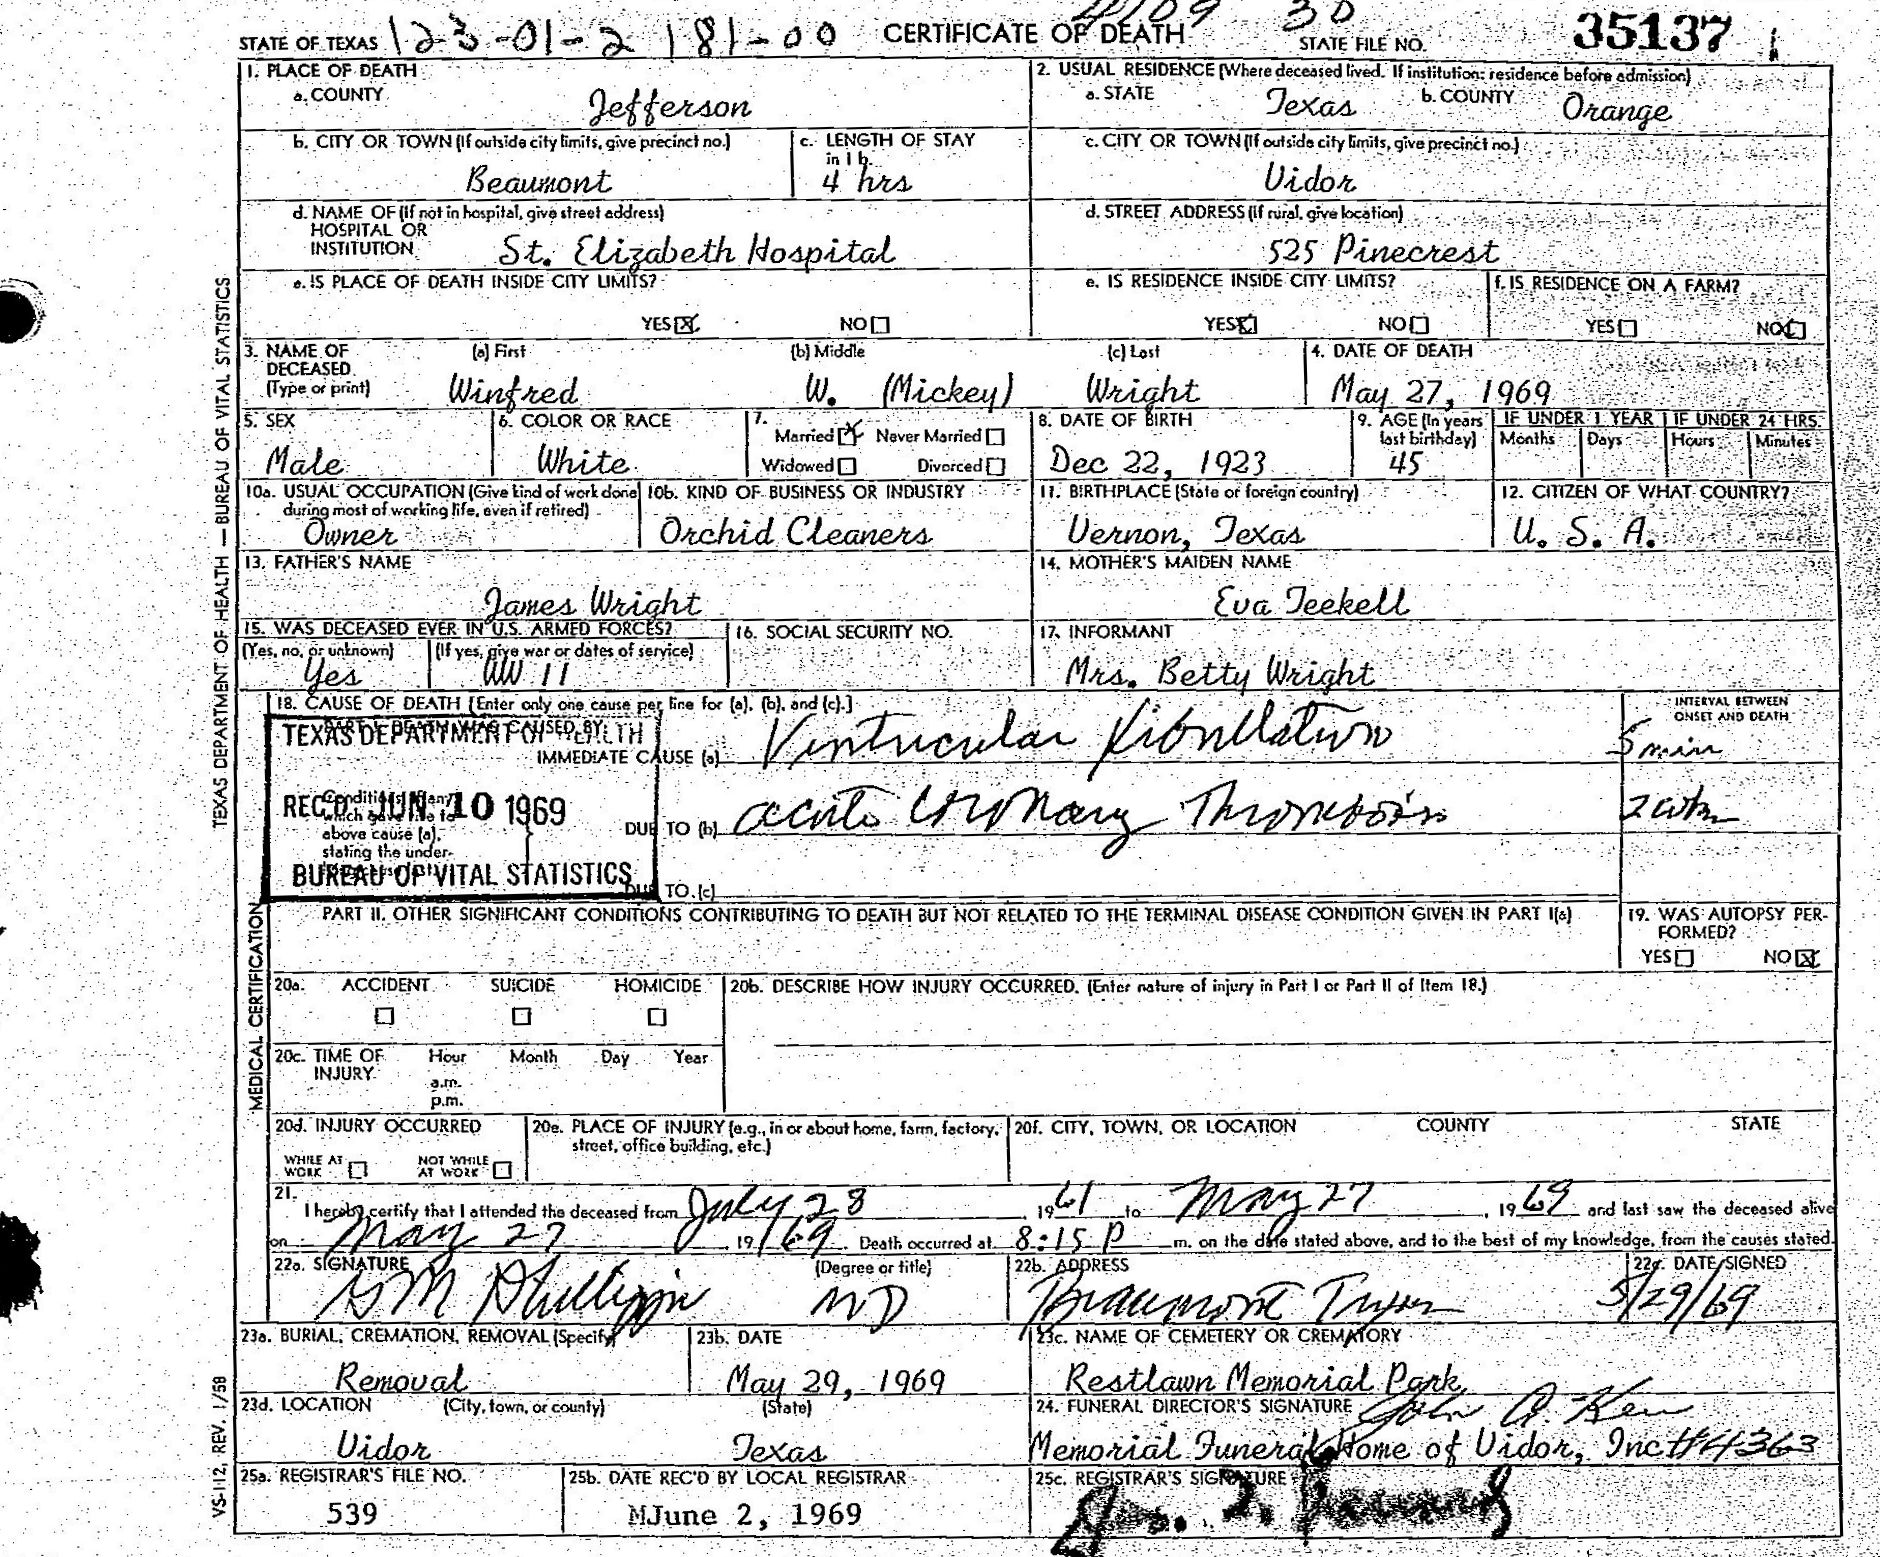 4109 30
STATE OF TEXAS 123-01-2 181-00 CERTIFICATE OF DEATH STATE FILE NO. 35137
1. PLACE OF DEATH
a. COUNTY Jefferson
2. USUAL RESIDENCE (Where deceased lived. If institution: residence before admission)
a. STATE Texas b. COUNTY Orange
b. CITY OR TOWN (If outside city limits, give precinct no.) Beaumont
c. LENGTH OF STAY in 1 b. 4 hrs
c. CITY OR TOWN (If outside city limits, give precinct no.) Vidor
d. NAME OF (If not in hospital, give street address)
HOSPITAL OR
INSTITUTION St. Elizabeth Hospital
d. STREET ADDRESS (If rural, give location)
525 Pinecrest
e. IS PLACE OF DEATH INSIDE CITY LIMITS?
YES☒ NO☐
e. IS RESIDENCE INSIDE CITY LIMITS?
YES☒ NO☐
f. IS RESIDENCE ON A FARM?
YES☐ NO☒
3. NAME OF DECEASED (Type or print)
(a) First Winfred
(b) Middle W. (Mickey)
(c) Last Wright
4. DATE OF DEATH
May 27, 1969
5. SEX
Male
6. COLOR OR RACE
White
7. Married☒ Never Married☐
Widowed☐ Divorced☐
8. DATE OF BIRTH
Dec 22, 1923
9. AGE (In years last birthday)
45
IF UNDER 1 YEAR
Months Days
IF UNDER 24 HRS.
Hours Minutes
10a. USUAL OCCUPATION (Give kind of work done during most of working life, even if retired)
Owner
10b. KIND OF BUSINESS OR INDUSTRY
Orchid Cleaners
11. BIRTHPLACE (State or foreign country)
Vernon, Texas
12. CITIZEN OF WHAT COUNTRY?
U. S. A.
13. FATHER'S NAME
James Wright
14. MOTHER'S MAIDEN NAME
Eva Teekell
15. WAS DECEASED EVER IN U.S. ARMED FORCES?
(Yes, no, or unknown) Yes
(If yes, give war or dates of service) WW 11
16. SOCIAL SECURITY NO.
17. INFORMANT
Mrs. Betty Wright
18. CAUSE OF DEATH [Enter only one cause per line for (a), (b), and (c).]
INTERVAL BETWEEN ONSET AND DEATH
PART I. DEATH WAS CAUSED BY:
IMMEDIATE CAUSE (a) Ventricular Fibrillation 5 min
TEXAS DEPARTMENT OF HEALTH
REC'D JUN 10 1969
BUREAU OF VITAL STATISTICS
Conditions, if any,
which gave rise to
above cause (a),
stating the under-
DUE TO (b) acute Coronary Thrombosis
DUE TO (c)
PART II. OTHER SIGNIFICANT CONDITIONS CONTRIBUTING TO DEATH BUT NOT RELATED TO THE TERMINAL DISEASE CONDITION GIVEN IN PART I(a)
19. WAS AUTOPSY PER-
FORMED?
YES☐ NO☒
20a. ACCIDENT SUICIDE HOMICIDE
☐ ☐ ☐
20b. DESCRIBE HOW INJURY OCCURRED. (Enter nature of injury in Part I or Part II of Item 18.)
20c. TIME OF INJURY Hour Month Day Year
a.m.
p.m.
20d. INJURY OCCURRED
WHILE AT WORK ☐ NOT WHILE AT WORK ☐
20e. PLACE OF INJURY (e.g., in or about home, farm, factory, street, office building, etc.)
20f. CITY, TOWN, OR LOCATION COUNTY STATE
21.
I hereby certify that I attended the deceased from July 28, 1961 to May 27, 1969 and last saw the deceased alive
on May 27, 19/69. Death occurred at 8:15 P m. on the date stated above, and to the best of my knowledge, from the causes stated.
22a. SIGNATURE (Degree or title)
MD
22b. ADDRESS
Beaumont Texas
22c. DATE SIGNED
5/29/69
23a. BURIAL, CREMATION, REMOVAL (Specify)
Removal
23b. DATE
May 29, 1969
23c. NAME OF CEMETERY OR CREMATORY
Restlawn Memorial Park
23d. LOCATION (City, town, or county) (State)
Vidor Texas
24. FUNERAL DIRECTOR'S SIGNATURE
Memorial Funeral Home of Vidor, Inc #4363
25a. REGISTRAR'S FILE NO.
539
25b. DATE REC'D BY LOCAL REGISTRAR
MJune 2, 1969
25c. REGISTRAR'S SIGNATURE
TEXAS DEPARTMENT OF HEALTH — BUREAU OF VITAL STATISTICS
MEDICAL CERTIFICATION
VS-112, REV. 1/58